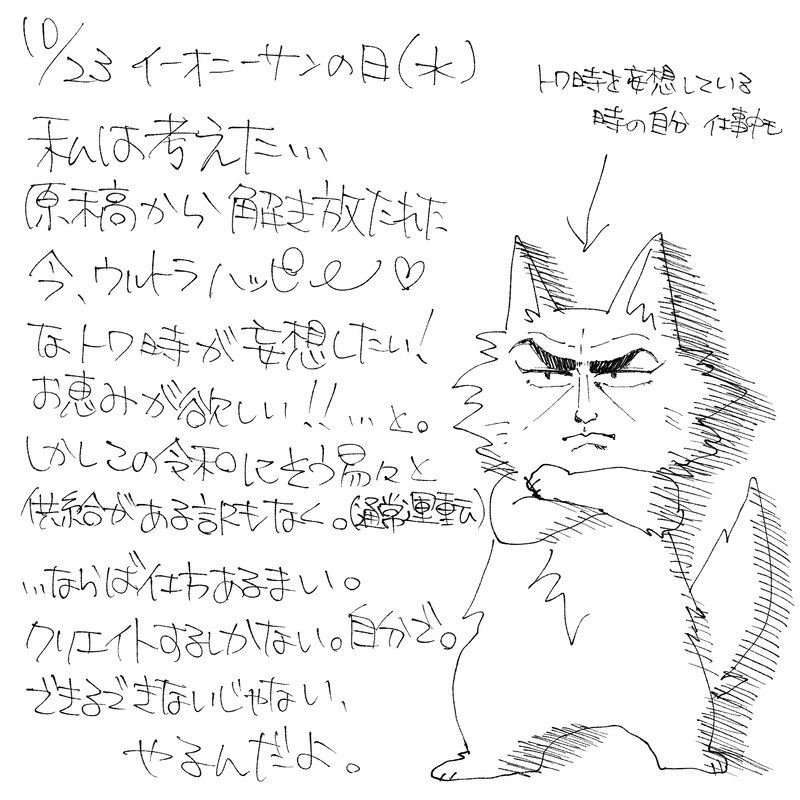 10/23 イーオニーサンの日(水)
トワ時を妄想している
時の自分 仕事中も
私は考えた…
原稿から解き放たれた
今、ウルトラハッピー♡
なトワ時が妄想したい!
お恵みが欲しい!!…と。
しかしこの令和にそう易々と
供給がある訳もなく。(通常運転)
…ならば仕方あるまい。
クリエイトするしかない。自分で。
できるできないじゃない、
やるんだよ。